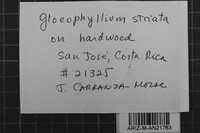 Gloeophyllium striata
on hardwood
San José, Costa Rica
# 21325
J. CARRANZA-MORSE
ARIZ-M-AN21763